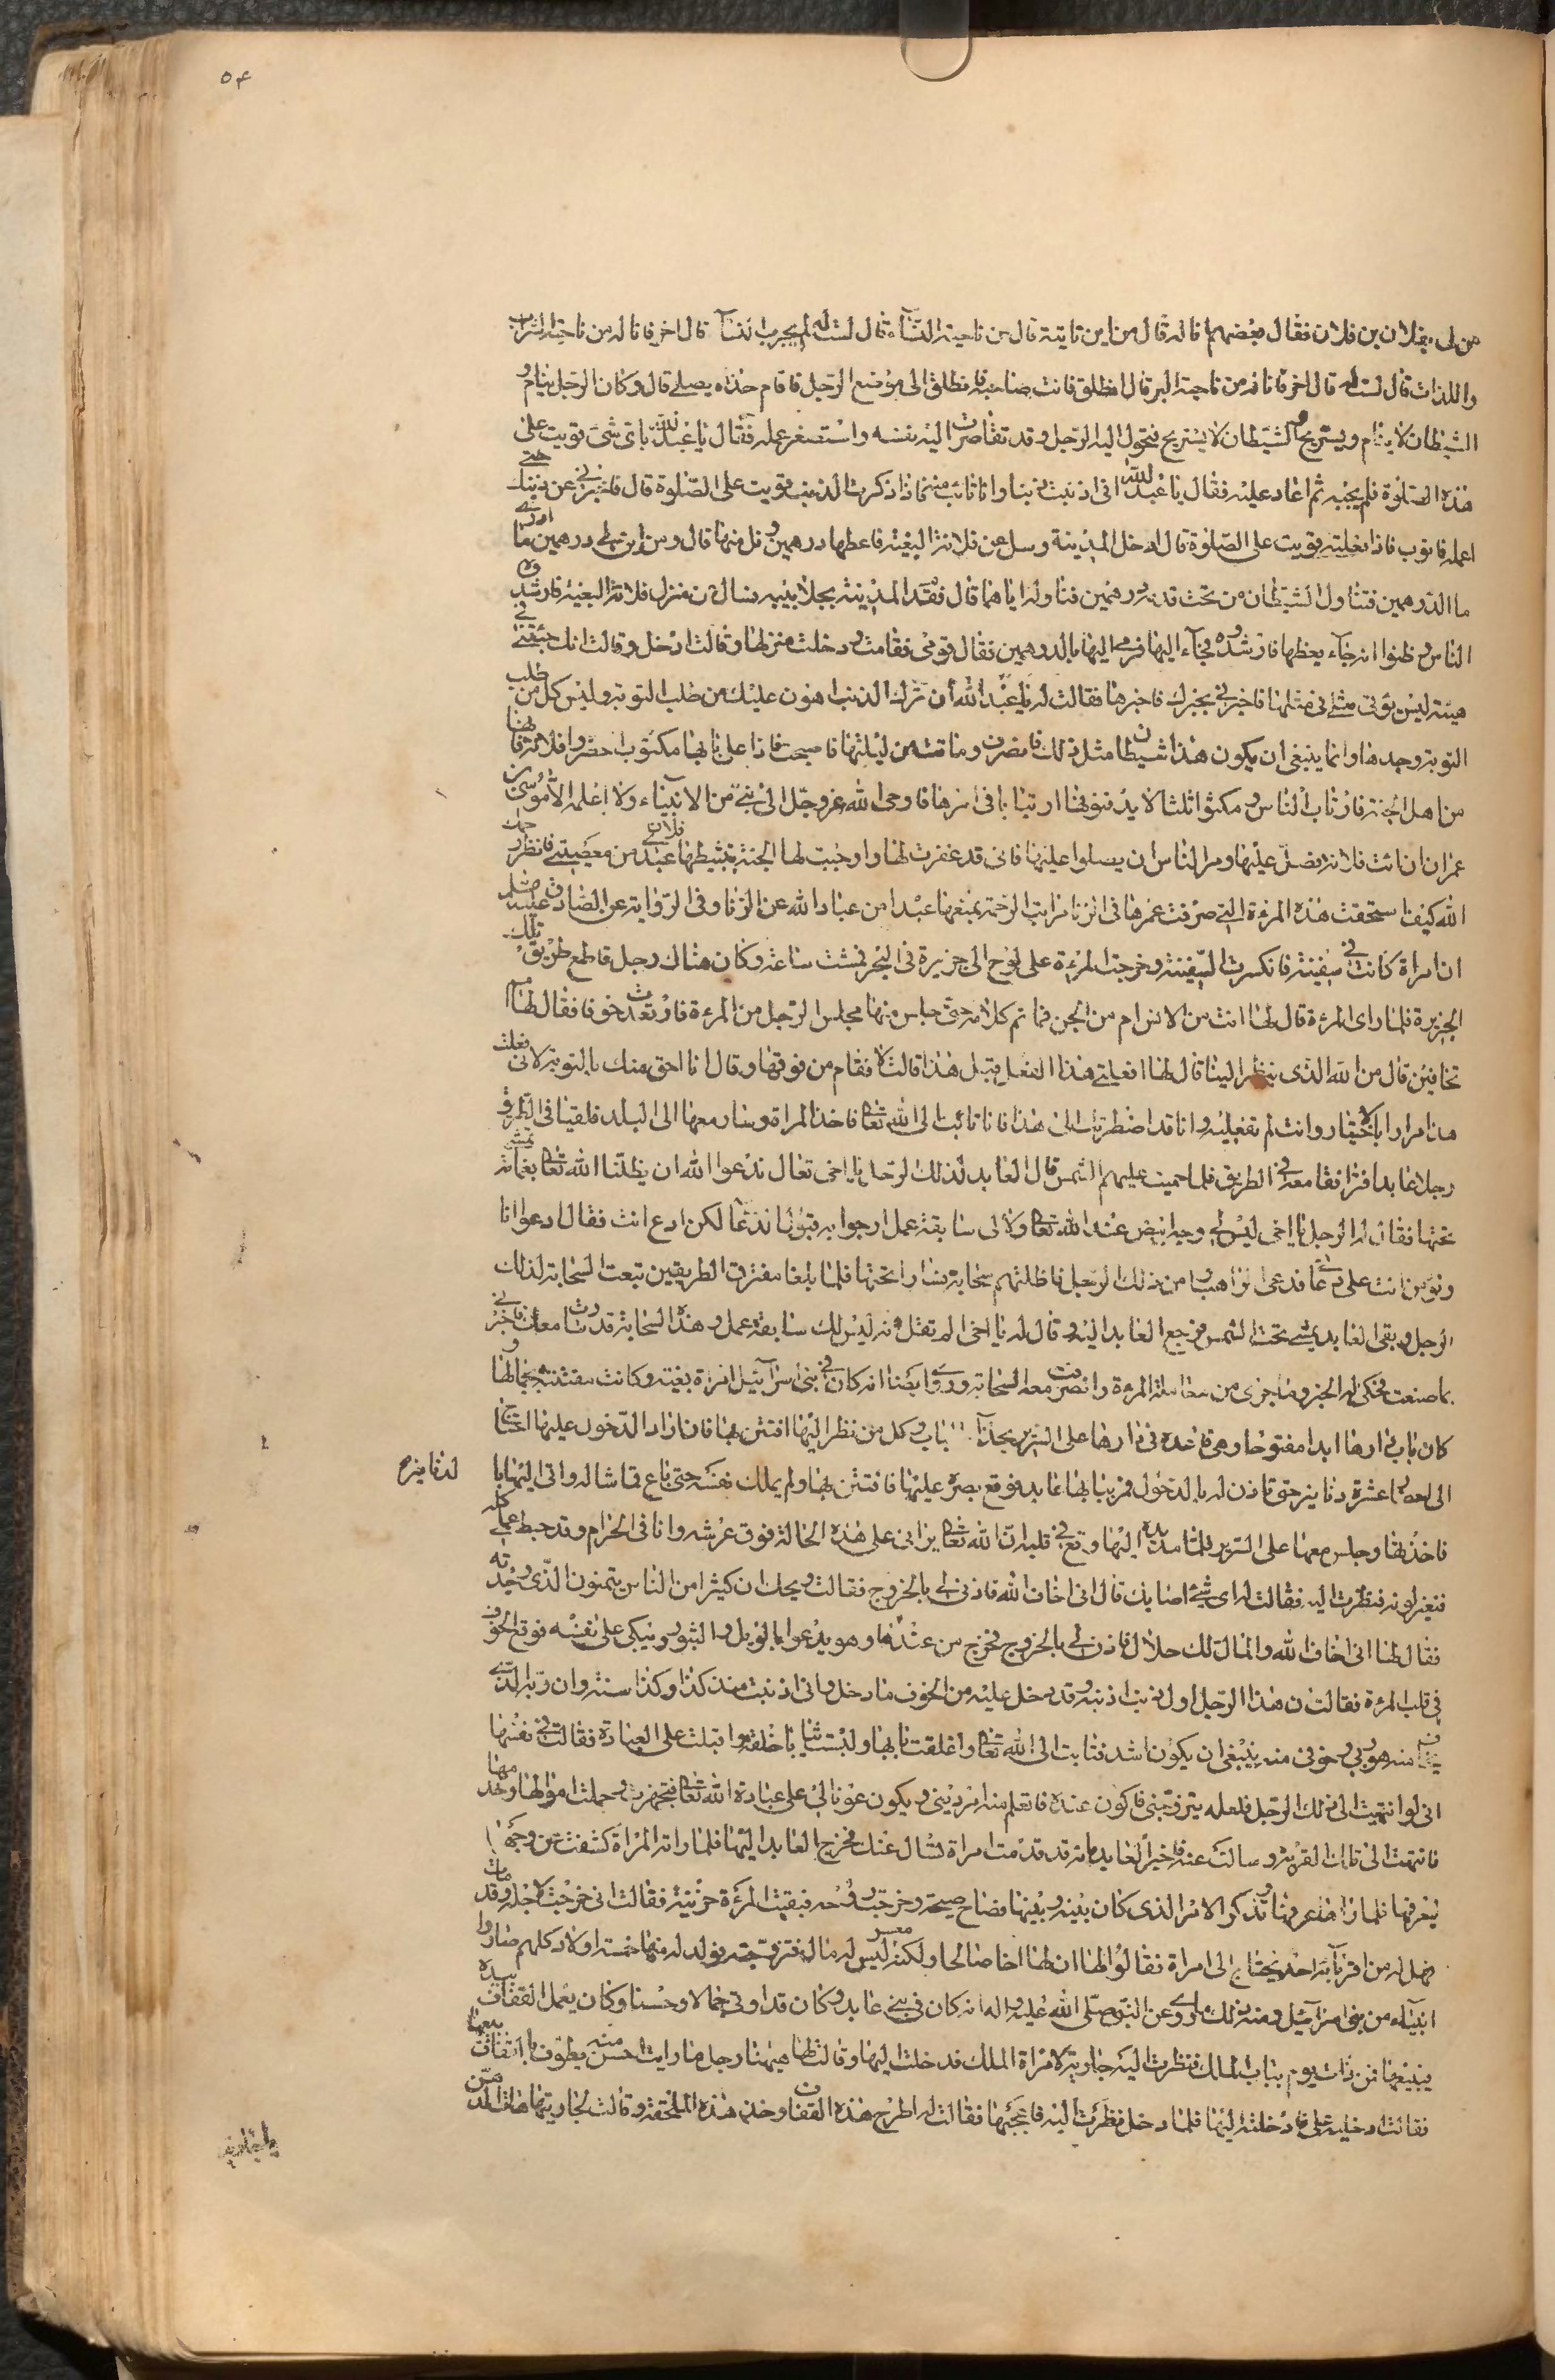 ٥٤
من لي بفلان بن فلان فقال بعضهم انا له قال من اين تاتيه قال من ناحية النساء قال لست له لم يجرب النساء قال اخر فانا له من ناحية الشراب
واللذات قال لست له قال اخر فانا له من ناحية البر قال انطلق فانت صاحبه فانطلق الى موضع الرجل فاقام حذاه يصلي قال وكان الرجل ينام و
الشيطان لا ينام ويستريح والشيطان لا يستريح فتحول اليه الرجل وقد تقاصرت اليه نفسه واستصغر عمله فقال يا عبد الله باي شيء قويت على
هذه الصلوة فلم يجبه ثم اعاد عليه فقال يا عبد الله اني اذنبت ذنبا وانا تائب منه فاذا ذكرت الذنب قويت على الصلوة قال فاخبرني عن ذنبك حتى
اعمله فاتوب فاذا فعلته قويت على الصلوة قال ادخل المدينة وسل عن فلانة البغية فاعطها درهمين ونل منها قال ومن اين لي درهمين ما ادري
ما الدرهمين فتناول الشيطان من تحت قدمه درهمين فناوله اياهما فقام فدخل المدينة بجلابيبه يسال عن منزل فلانة البغية فارشده
الناس وظنوا انه جاء يعظها فارشدوه فجاء اليها فرمى اليها بالدرهمين فقال قومي فقامت ودخلت منزلها وقالت ادخل وقالت انك جئتني في
هيئة ليس يؤتى مثلي في مثلها فاخبرني بخبرك فاخبرها فقالت له يا عبد الله ان ترك الذنب اهون عليك من طلب التوبة وليس كل من طلب
التوبة وجدها وانما ينبغي ان يكون هذا شيطانا مثل لك فانصرف وماتت من ليلتها فاصبحت فاذا على بابها مكتوب احضروا فلانة فانها
من اهل الجنة فارتاب الناس ومكثوا ثلثا لا يدفنونها ارتيابا في امرها فاوحى الله عز وجل الى نبي من الانبياء ولا اعلمه الا موسى بن
عمران ان ائت فلانة فصل عليها ومر الناس ان يصلوا عليها فاني قد غفرت لها واوجبت لها الجنة بتثبيطها عبدي فلانا من معصيتي فانظر رحمك
الله كيف استحقت هذه المرءة التي صرفت عمرها في الزنا مراتب الرحمة بمنعها عبدا من عباد الله عن الزنا وفي الرواية عن الصادق عليه السلم
ان امراة كانت في سفينة فانكسرت السفينة وخرجت المرءة على لوح الى جزيرة في البحر فمشت ساعة وكان هناك رجل قاطع طريق في تلك
الجزيرة فلما راى المرءة قال لها انت من الانس ام من الجن فما تم كلامه حتى جلس منها مجلس الرجل من المرءة فارتعدت خوفا فقال لها مم
تخافين قال من الله الذي ينظر الينا قال لها افعلتي هذا الفعل قبل هذا قالت لا فقام من فوقها وقال انا احق منك بالتوبة لاني فعلت
هذا مرارا بالاختيار وانت لم تفعليه وانا قد اضطررتك الى هذا فانا تائب الى الله تعالى فاخذ المراة وسار معها الى البلد فلقيا في الطريق
رجلا عابدا فترافقا معه في الطريق فلما حميت عليهم الشمس قال العابد لذلك الرجل يا اخي تعال ندعوا الله ان يظلنا الله تعالى بغمامة نمشي
تحتها فقال له الرجل يا اخي ليس لي وجه ابيض عند الله تعالى ولا لي سابقة عمل ارجوا به قبول الدعاء لكن ادع انت فقال ادعوا انا
وتؤمن انت على دعائي فدعى الراهب وامن ذلك الرجل فاظلتهم سحابة وسارا تحتها فلما بلغا مفترق الطريقين تبعت السحابة لذلك
الرجل وبقى العابد يمشي تحت الشمس فرجع العابد اليه وقال له يا اخي الم تقل انه ليس لك سابقة عمل وهذه السحابة قد سارت معك فاخبرني
بما صنعت فحكى له الخبر وما جرى من معاملة المرءة وانصرفت معه السحابة وروي ايضا انه كان في بني اسرائيل امراة بغية وكانت مفتنة بجمالها و
كان باب دارها ابدا مفتوحا وهي قاعدة في دارها على السرير بحذاء الباب وكل من نظر اليها افتتن بها فان اراد الدخول عليها احتاج
الى احضار عشرة دنانير حتى تاذن له بالدخول فمر ببابها عابد فوقع بصره عليها فافتتن بها ولم يملك نفسه حتى باع قماشا له واتى اليها بالدنانير
الدنانير
فاخذتها وجلس معها على السرير فلما مد يده اليها وقع في قلبه ان الله تعالى يراني على هذه الحالة فوق عرشه وانا في الحرام وقد حبط عملي كله
فتغير لونه فنظرت اليه فقالت له اي شيء اصابك قال اني اخاف الله فاذني لي بالخروج فقالت ويحك ان كثيرا من الناس يتمنون الذي وجدته
فقال لها اني اخاف الله والمال لك حلال فاذني لي بالخروج فخرج من عندها وهو يدعوا بالويل والثبور ويبكي على نفسه فوقع الخوف
في قلب المرءة فقالت ان هذا الرجل اول ذنب اذنبه وقد دخل عليه من الخوف ما دخل واني اذنبت منذ كذا وكذا سنة وان ربه الذي
يخاف منه هو ربي وخوفي منه ينبغي ان يكون اشد فتابت الى الله تعالى واغلقت بابها ولبست ثيابا خلقة واقبلت على العبادة فقالت في نفسها
اني لو انتهيت الى ذلك الرجل فلعله يتزوجني فاكون عنده فاتعلم منه امر ديني ويكون عونا لي على عبادة الله تعالى فتجهزت وحملت اموالها وخدمها
فانتهت الى تلك القرية وسالت عنه فاخبر العابد انه قد قدمت امراة تسال عنك فخرج العابد اليها فلما راته المراة كشفت عن وجهها
ليعرفها فلما راها عرفها وتذكر الامر الذي كان بينه وبينها فصاح صيحة وخرجت روحه فبقيت المرءة حزينة فقالت اني خرجت لاجله وقد مات
فهل له من اقربائه احد يحتاج الى امراة فقالوا لها ان لها اخا صالحا ولكنه معسر ليس له مال فتزوجته فولد له منها خمسة اولاد كلهم صاروا
انبياء من بني اسرائيل ومنه ذلك ما روي عن النبي صلى الله عليه واله انه كان في بني عابد وكان قد اوتي جمالا وحسنا وكان يعمل القفاف بيده
فيبيعها فمر ذات يوم بباب الملك فنظرت اليه جارية لامراة الملك فدخلت اليها وقالت لها هيهنا رجل ما رايت احسن منه يطوف بالقفاف يبيعها
فقالت ادخليه علي فادخلته اليها فلما دخل نظرت اليه فاعجبها فقالت له اطرح هذه القفاف وخذ هذه الملحفة وقالت لجاريتها هاتي الدهن